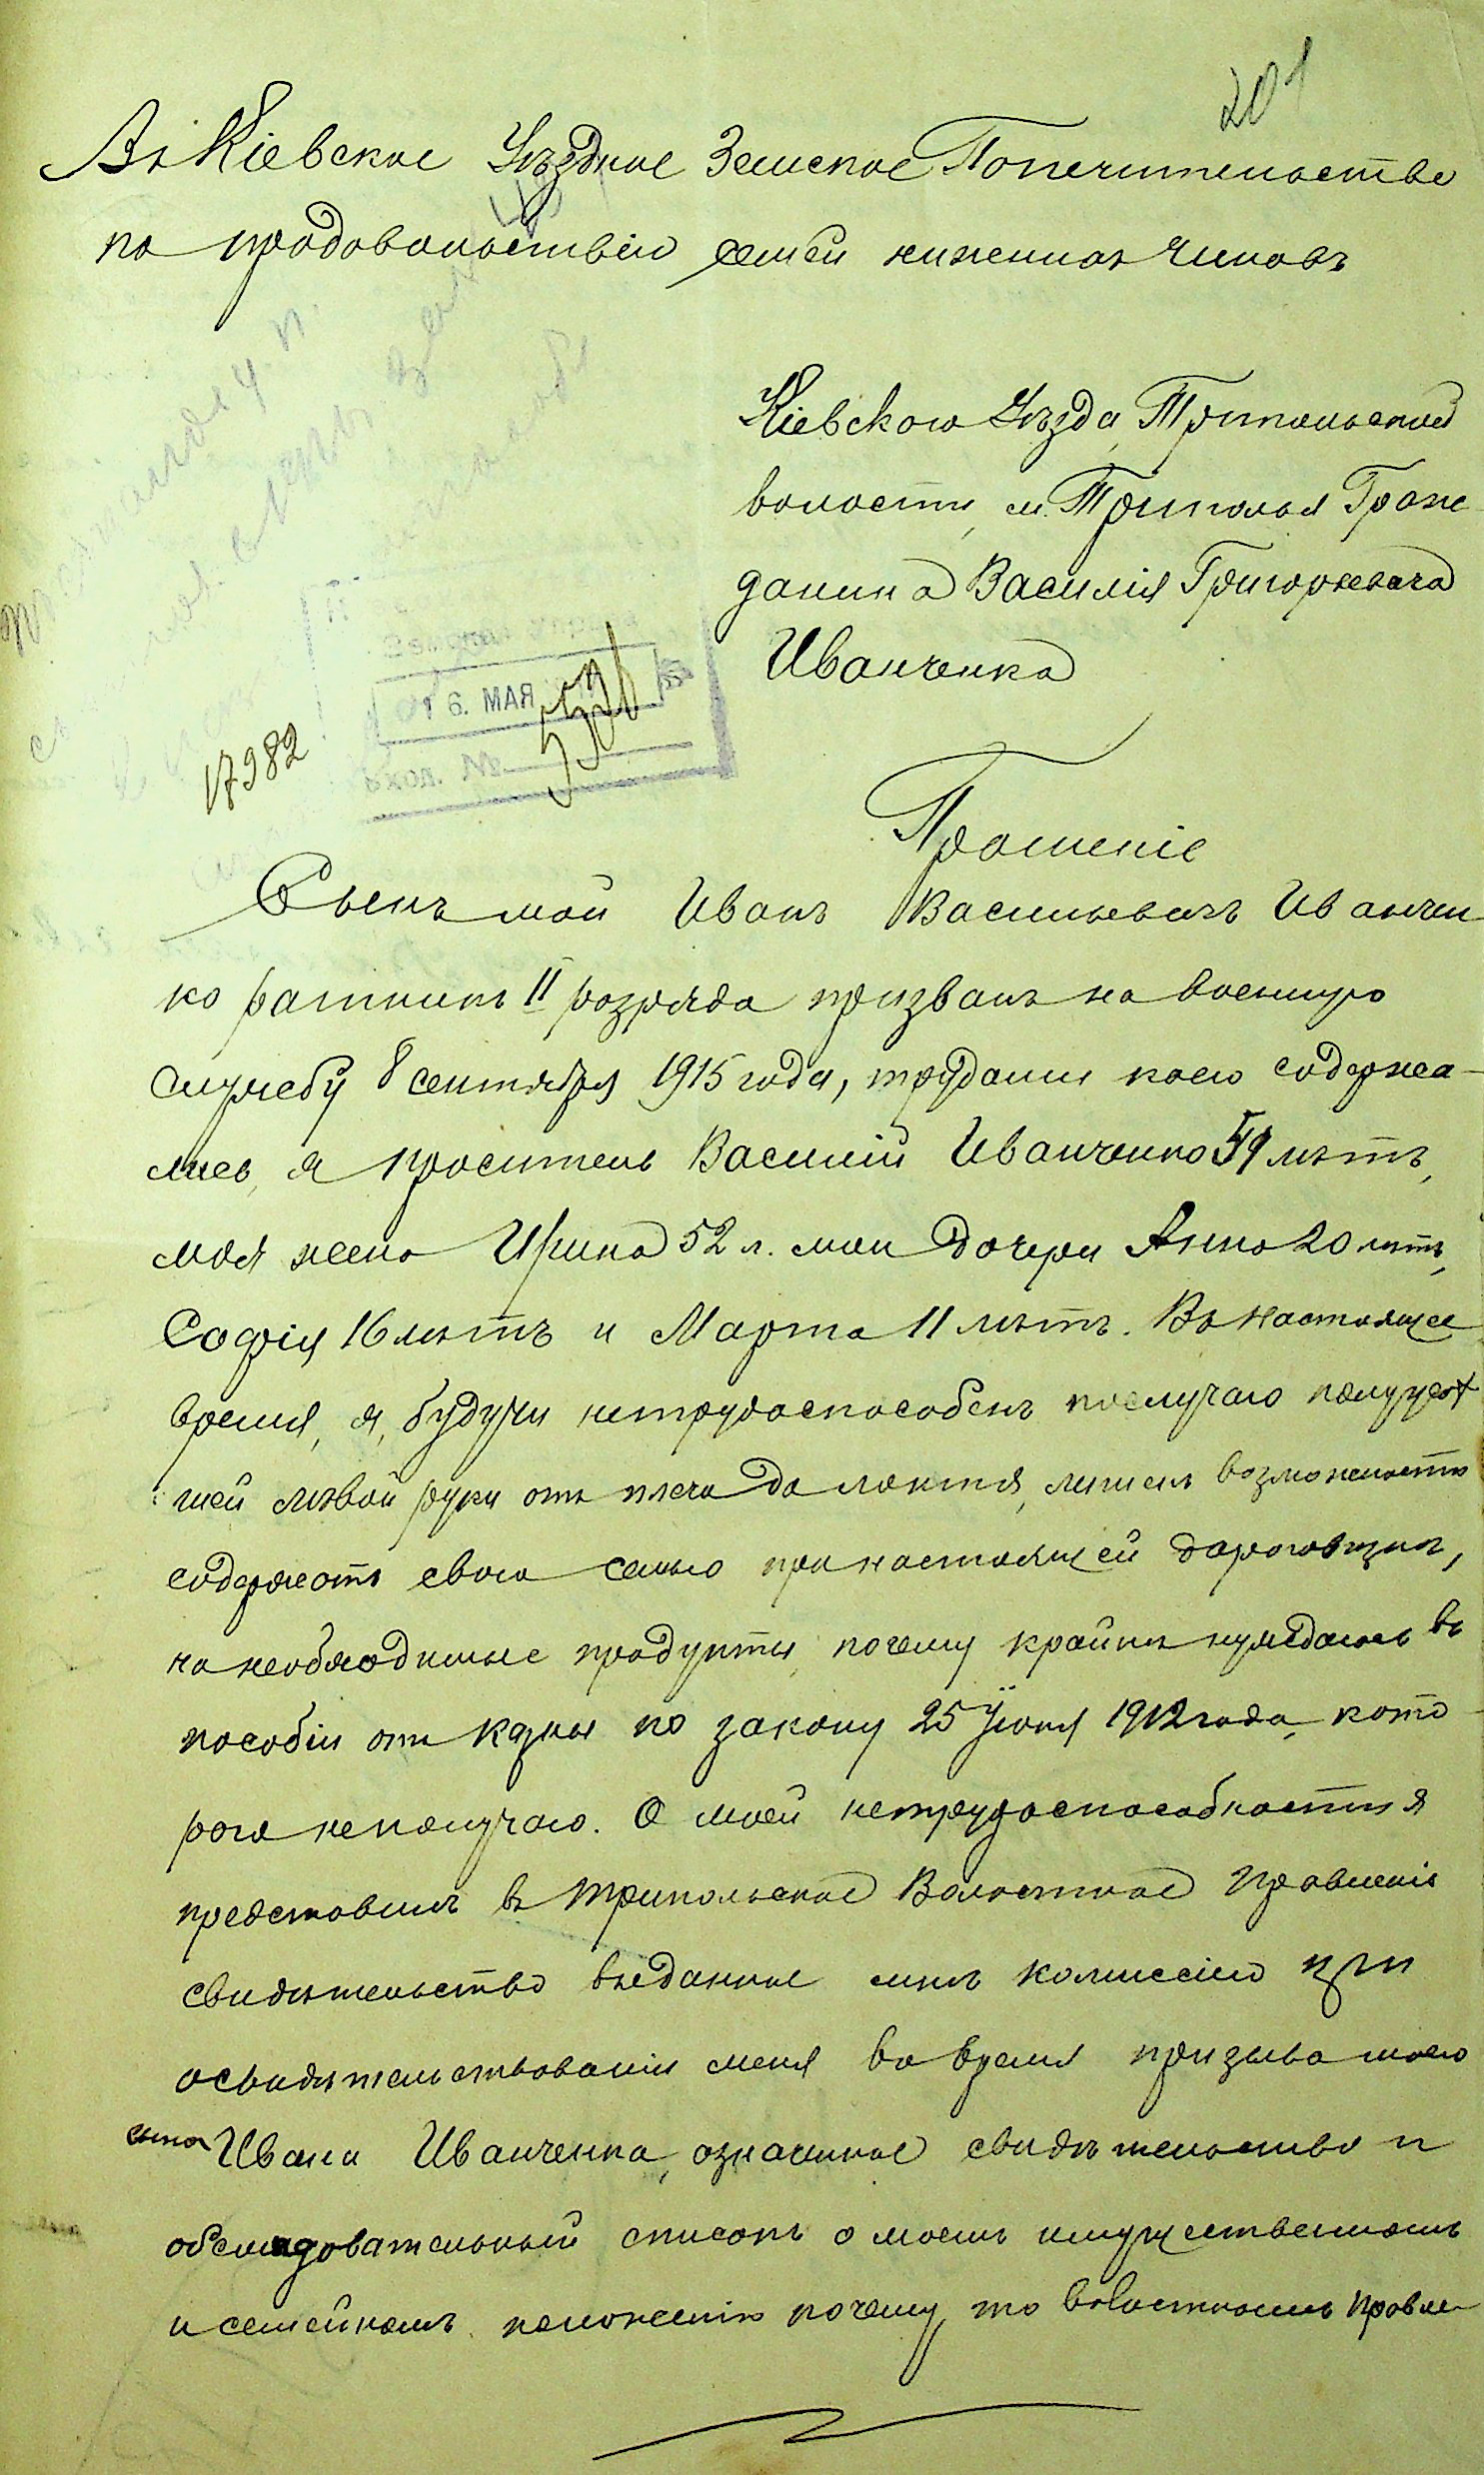 201
Въ Кіевское Уѣздное Земское Попечительство
по продовольствію семей нижнихъ чиновъ
Кіевскаго Уѣзда, Трипольской
волости, м. Триполья Граж
данина Василія Григорьевича
Иванченка
16. МАЯ
Вход. №
17982
Прошеніе
Сынъ мой Иванъ Васильевичъ Иванчен
ко ратникъ II разряда призванъ на военную
службу 8 сентября 1915 года, трудами коего содержа-
лись, я проситель Василій Иванченко 59 лѣтъ,
моя жена Ирина 52 л. мои дочери Анна 20 лѣтъ,
Софія 16 лѣтъ и Марта 11 лѣтъ. Въ настоящее
время, я, будучи нетрудоспособенъ по случаю
шей лѣвой руки отъ плеча до локтя, лишенъ возможности
содержать свою семью при настоящей дороговизнѣ,
на необходимые продукты, почему крайнѣ нуждаюсь въ
пособіи отъ казны по закону 25 Іюня 1912 года, кото
раго не получаю. О моей нетрудоспособности я
представилъ въ Трипольское Волостное Правленіе
свидѣтельство выданное мнѣ комиссіею при
освидѣтельствованіи меня во время призыва моего
сына Ивана Иванченка, означенное свидѣтельство и
обслѣдовательный списокъ о моемъ имущественномъ
и семейномъ положеніи почему то въ Волостномъ Правле